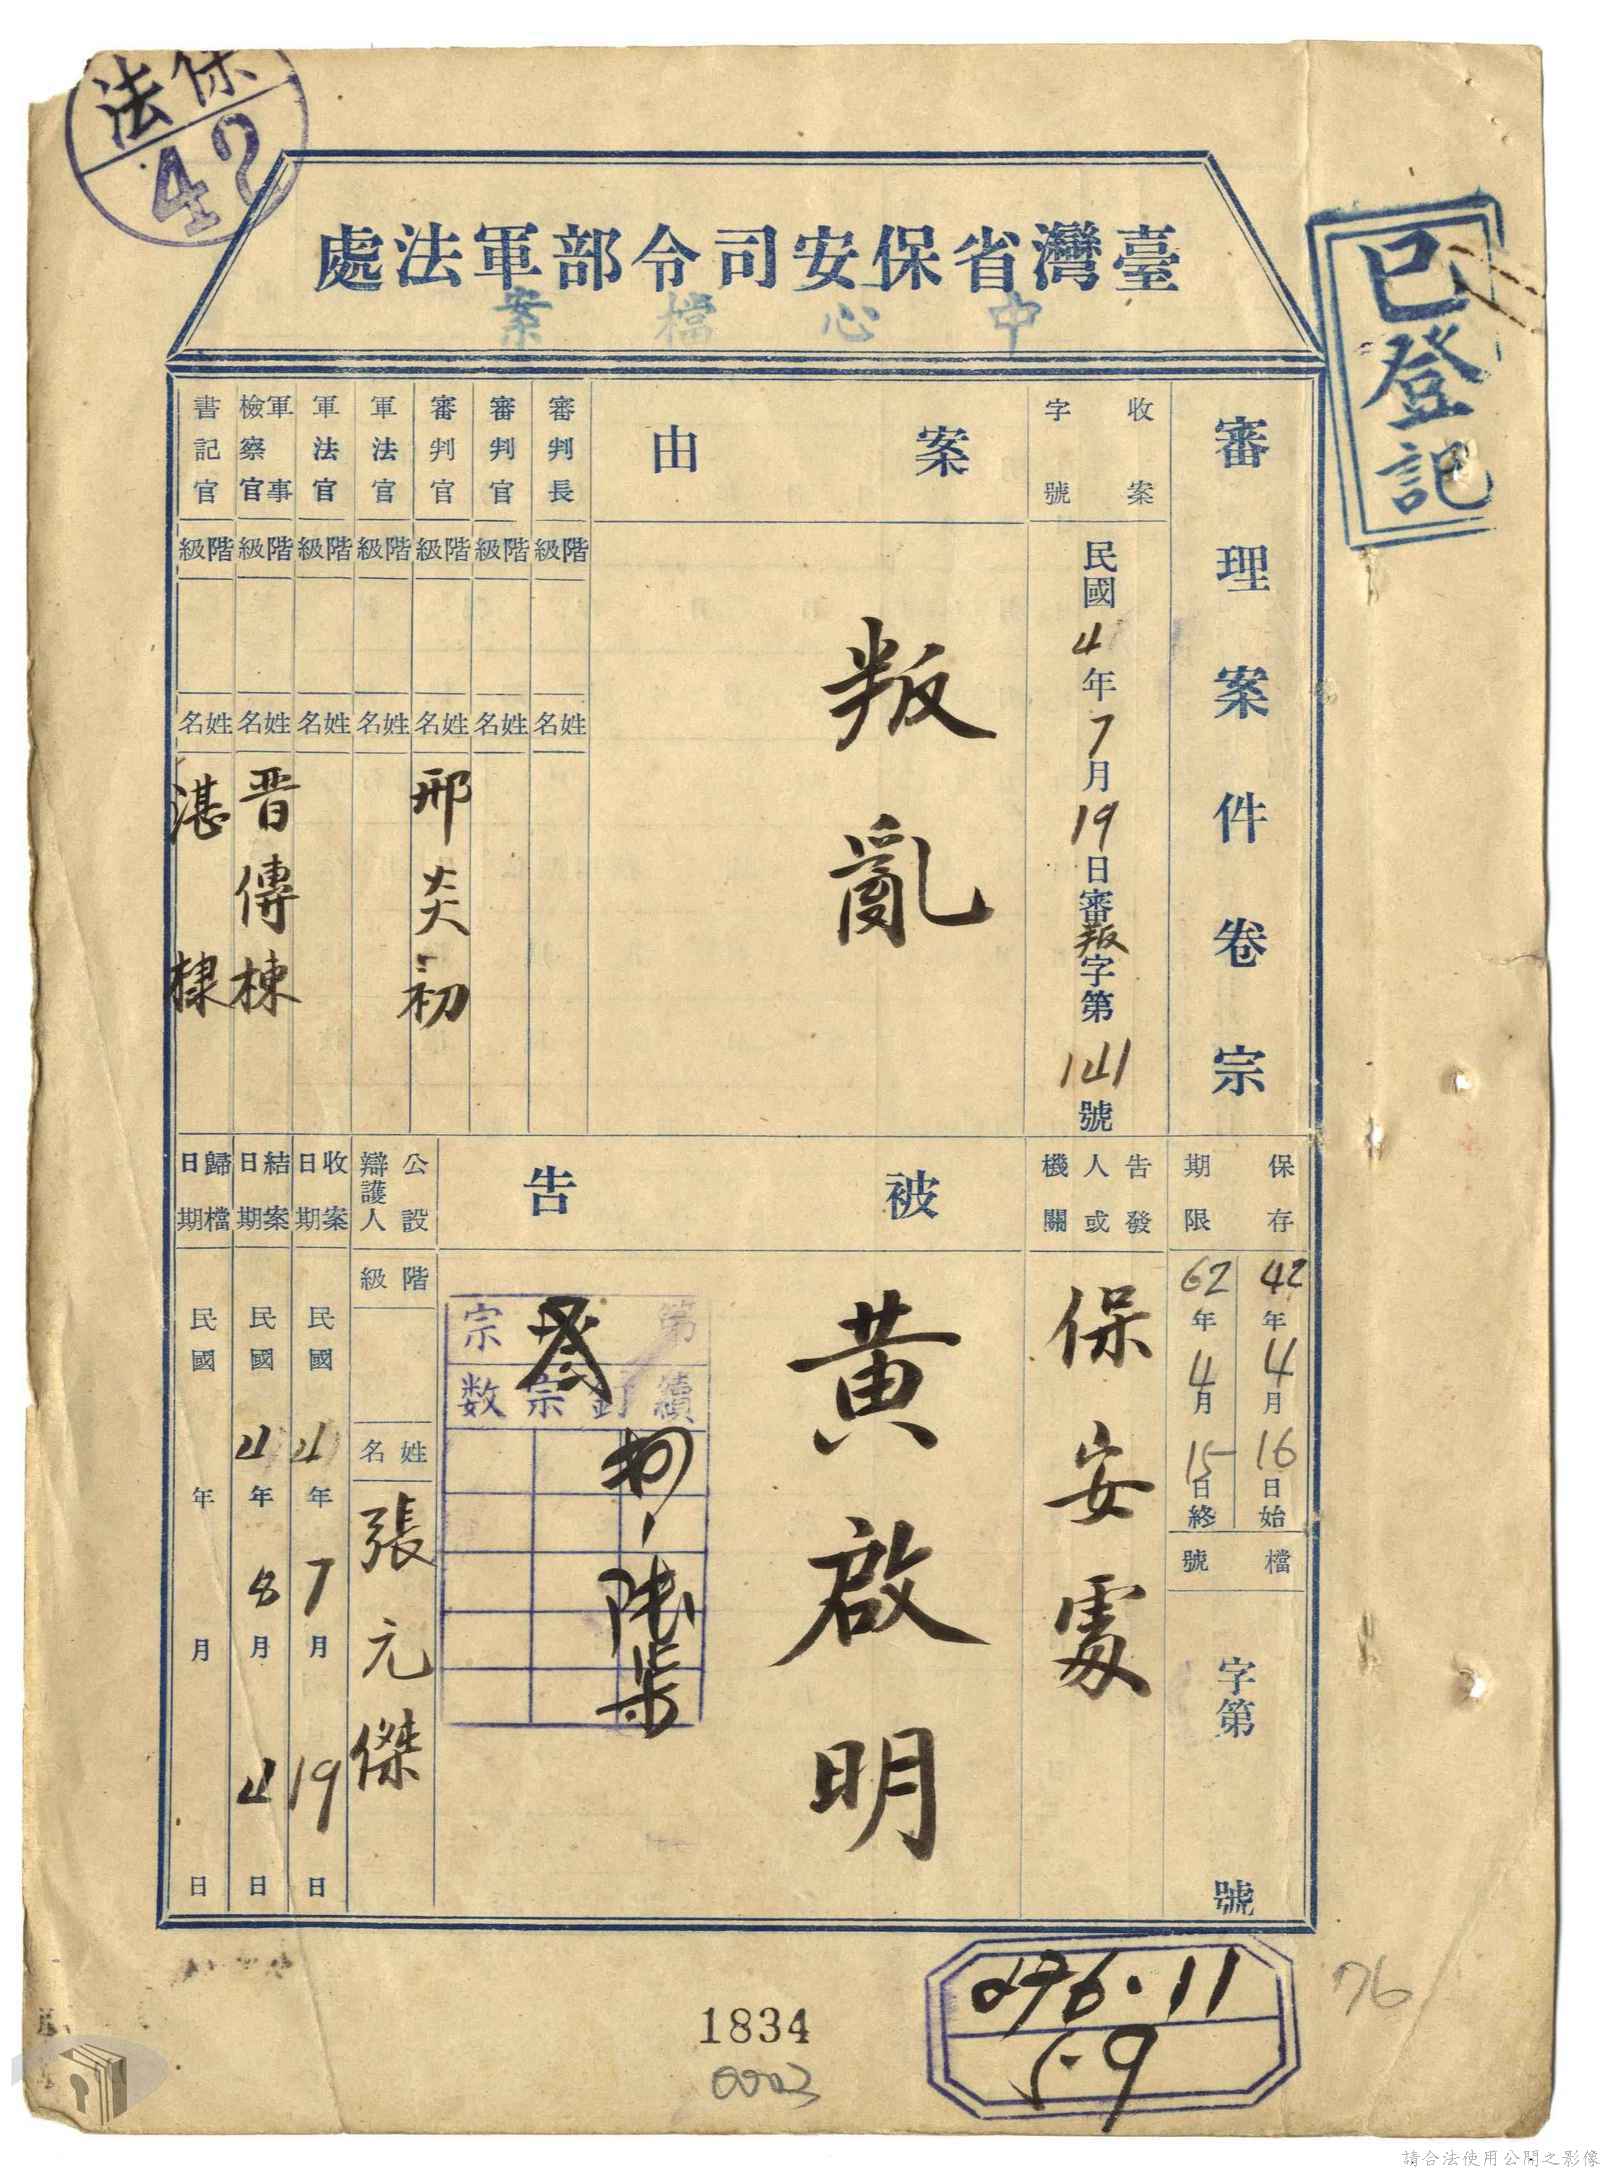 法保
42
臺灣省保安司令部軍法處
中心檔案
已登記
審理案件卷宗
收案字號
民國41年7月19日審叛字第141號
案由
叛亂
審判長
階級
姓名
審判官
階級
姓名
審判官
階級
姓名
邢炎初
軍法官
階級
姓名
軍法官
階級
姓名
軍事檢察官
階級
姓名
晋傳棟
書記官
階級
姓名
湛棣
保存期限
42年4月16日始
62年4月15日終
檔號
字第 號
告發人或機關
保安處
被告
黃啟明
第 宗
續訂宗数
公設辯護人
階級
姓名
張元傑
收案日期
民國41年7月19日
結案日期
民國41年8月 日
歸檔日期
民國 年 月 日
276.11
5.9
76
1834
0003
請合法使用公開之影像